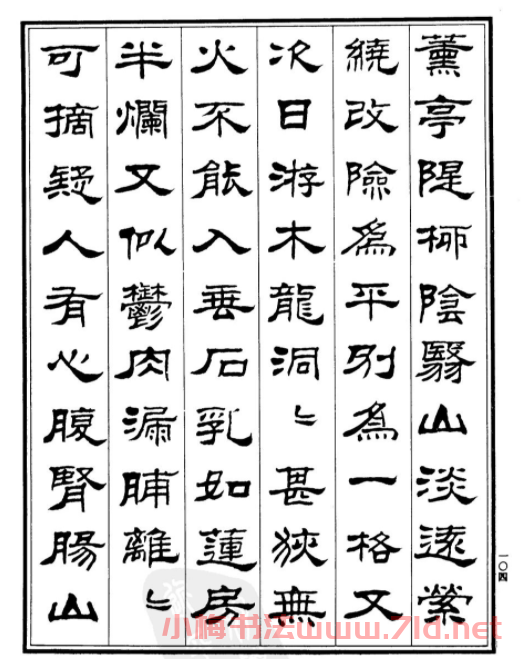 薰亭隄柳陰翳山淡遠縈
繞改險為平別為一格又
次日游木龍洞〻甚狹無
火不能入垂石乳如蓮房
半爛又似鬱肉漏脯離〻
可摘疑人有心腹腎腸山
一〇四
小梅书法www.7ld.net